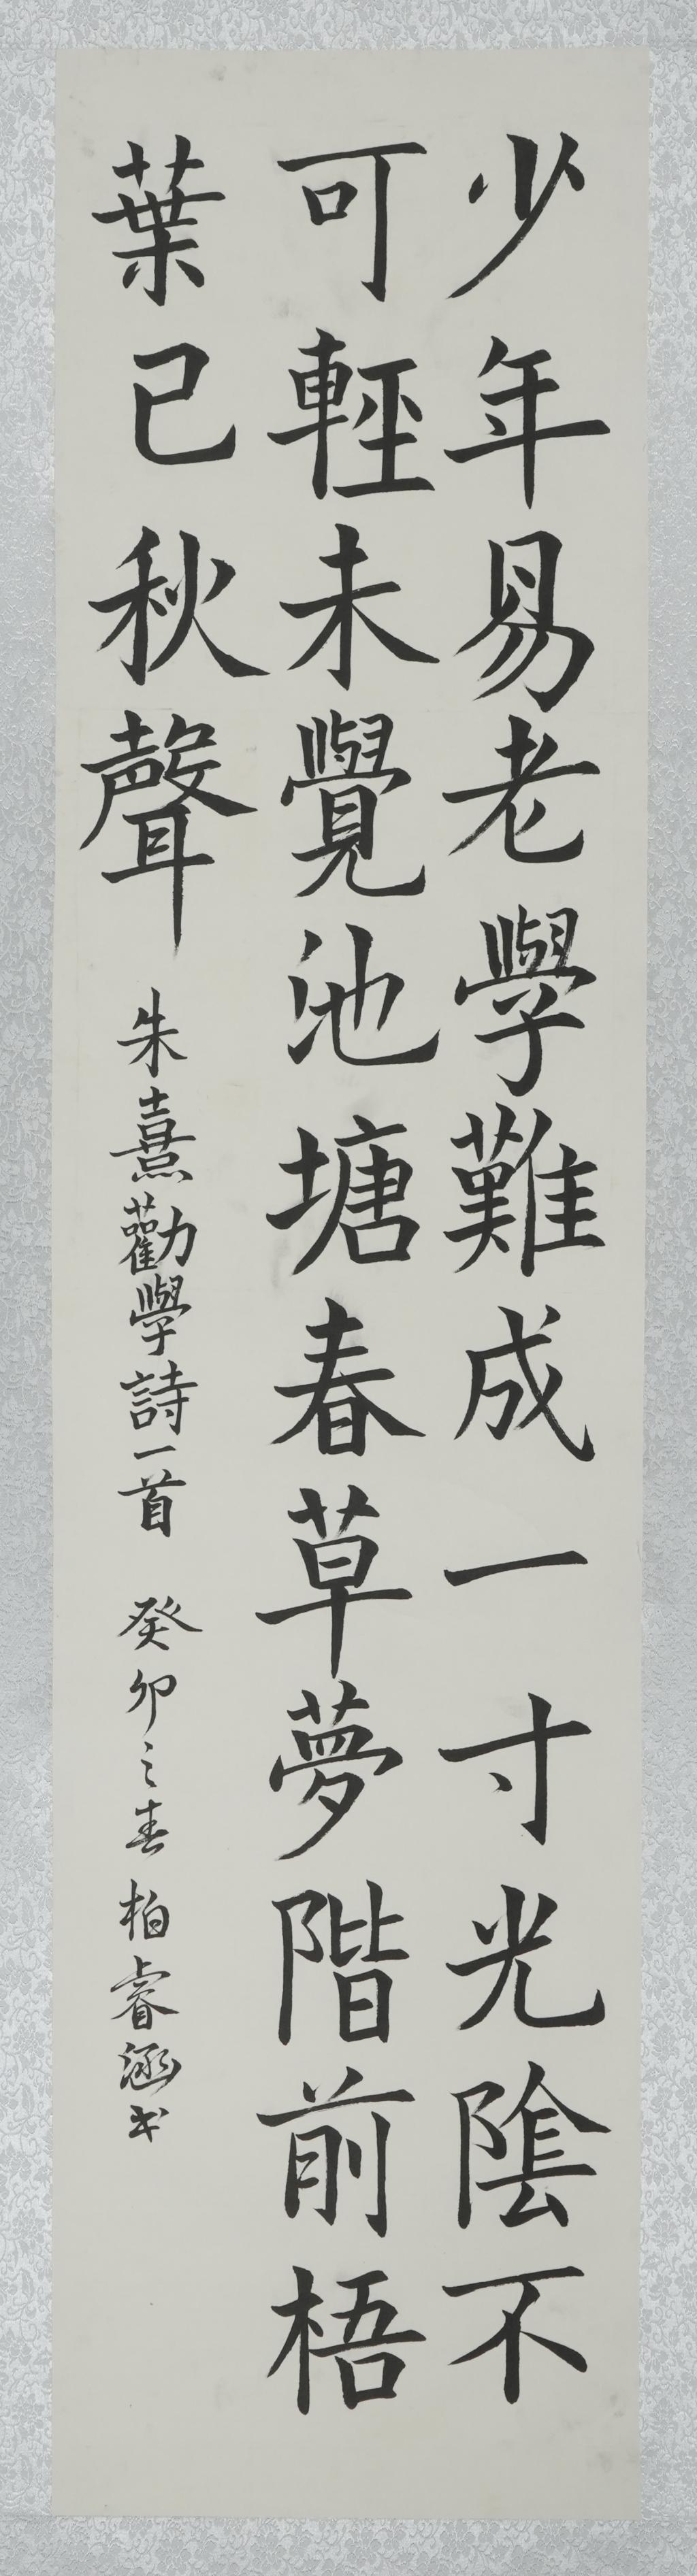 少年易老學難成一寸光陰不
可輕未覺池塘春草夢階前梧
葉已秋聲 朱熹勸學詩一首 癸卯之春 柏睿涵书